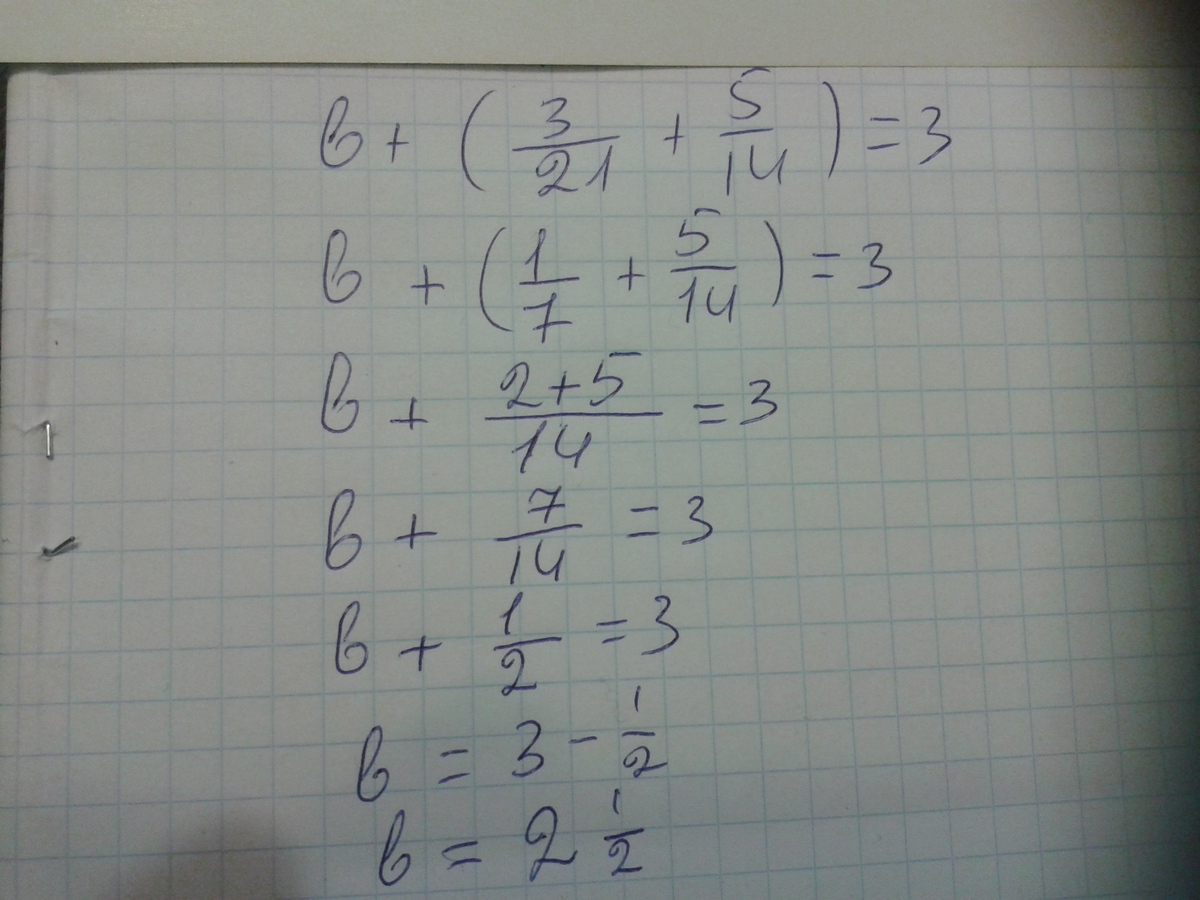 в + (3/21 + 5/14) = 3
в + (1/7 + 5/14) = 3
в + (2+5)/14 = 3
в + 7/14 = 3
в + 1/2 = 3
в = 3 - 1/2
в = 2 1/2